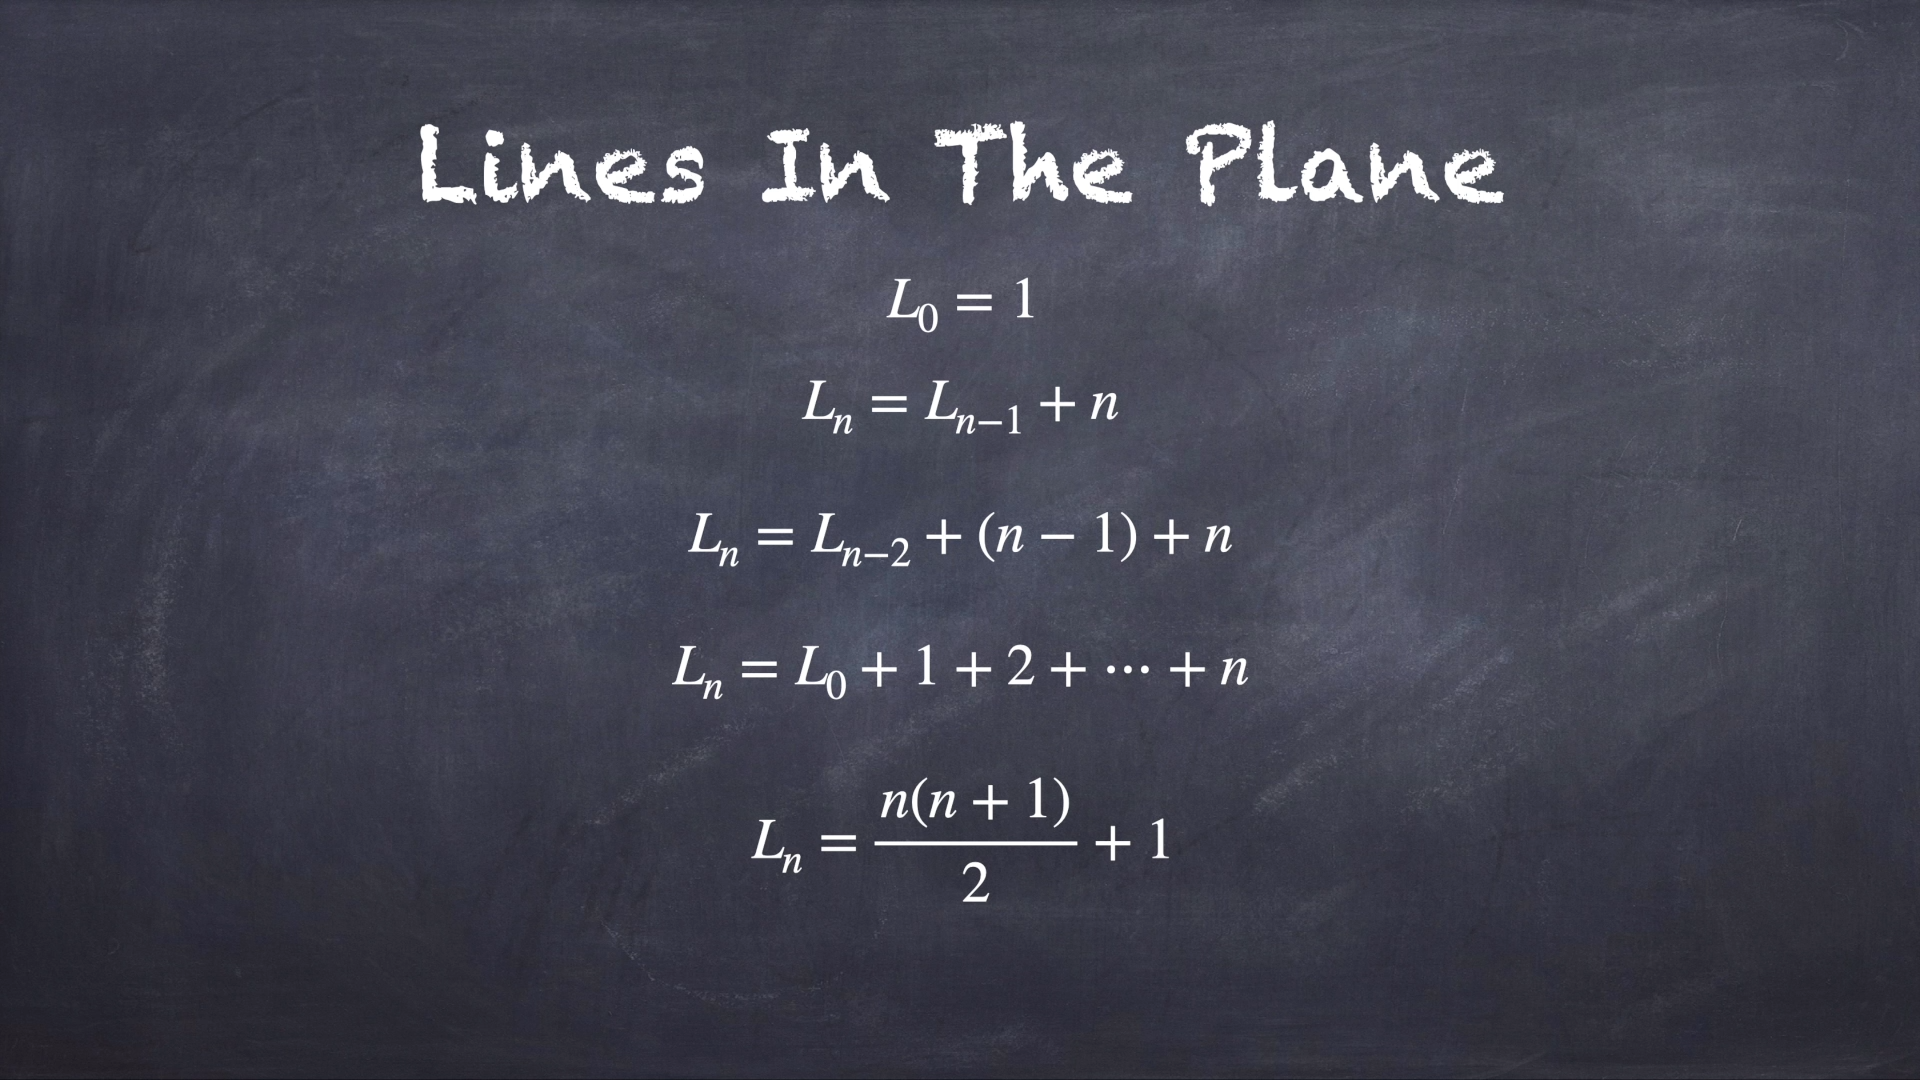 Lines In The Plane
L₀ = 1
Lₙ = Lₙ₋₁ + n
Lₙ = Lₙ₋₂ + (n − 1) + n
Lₙ = L₀ + 1 + 2 + ⋯ + n
Lₙ = n(n + 1)/2 + 1